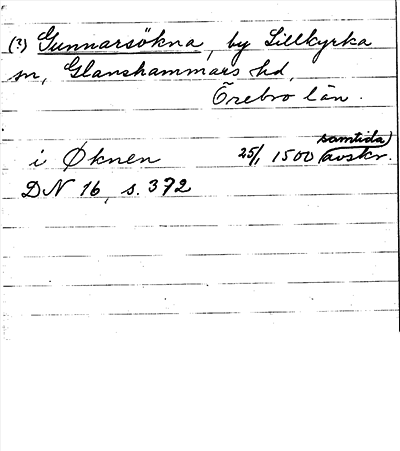 (?) Gunnarsökna, by Lillkyrka
sn, Glanshammars hd,
Örebro län.
i Øknen 25/1 1500 (samtida avskr.)
DN 16, s. 372